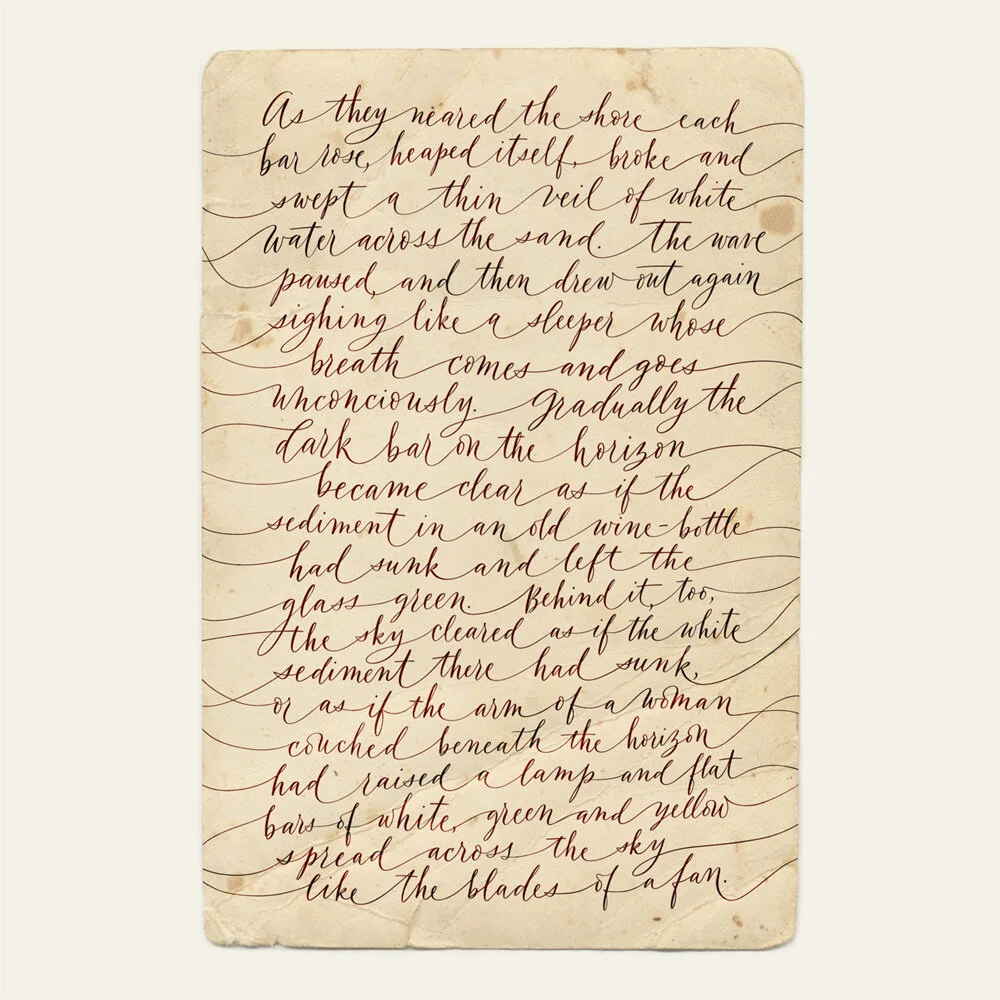 As they neared the shore each
bar rose, heaped itself, broke and
swept a thin veil of white
water across the sand. The wave
paused, and then drew out again
sighing like a sleeper whose
breath comes and goes
unconciously. Gradually the
dark bar on the horizon
became clear as if the
sediment in an old wine-bottle
had sunk and left the
glass green. Behind it, too,
the sky cleared as if the white
sediment there had sunk,
or as if the arm of a woman
couched beneath the horizon
had raised a lamp and flat
bars of white, green and yellow
spread across the sky
like the blades of a fan.